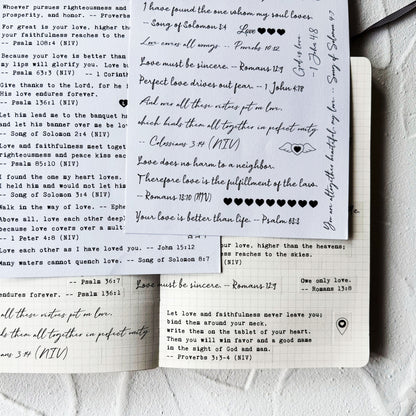 Whoever pursues righteousness and
prosperity, and honor. -- Proverbs
For great is your love, higher than
your faithfulness reaches to the
-- Psalm 108:4 (NIV)
Because your love is better than
my lips will glorify you. Love
-- Psalm 63:3 -- 1 Corinth
Give thanks to the Lord, for he
His love endures forever.
-- Psalm 136:1 (NIV)
Let him lead me to the banquet h
and let his banner over me be lov
-- Song of Solomon 2:4 (NIV)
Love and faithfulness meet togeth
righteousness and peace kiss eac
-- Psalm 85:10 (NIV)
I found the one my heart loves.
I held him and would not let him
-- Song of Solomon 3:4 (NIV)
Walk in the way of love. -- Ephe
Above all, love each other deepl
because love covers over a mult
-- 1 Peter 4:8 (NIV)
Love each other as I have loved you. -- John 15:12
Many waters cannot quench love. -- Song of Solomon 8:7
I have found the one whom my soul loves.
-- Song of Solomon 3:4
Love
Love covers all wrongs. -- Proverbs 10:12
Love must be sincere. -- Romans 12:9
Perfect love drives out fear. -- 1 John 4:18
And over all these virtues put on love,
which binds them all together in perfect unity.
-- Colossians 3:14 (NIV)
Love does no harm to a neighbor.
Therefore love is the fulfillment of the law.
-- Romans 13:10 (NIV)
Your love is better than life. -- Psalm 63:3
God is love.
-- 1 John 4:8
You are altogether beautiful, my love. -- Song of Solomon 4:7
love, higher than the heavens;
ness reaches to the skies.
(NIV)
-- Psalm 36:7
endures forever. -- Psalm 136:1
Love must be sincere. -- Romans 12:9
Owe only love.
-- Romans 13:8
all these virtues put on love,
ds them all together in perfect unity.
ans 3:14 (NIV)
Let love and faithfulness never leave you;
bind them around your neck,
write them on the tablet of your heart.
Then you will win favor and a good name
in the sight of God and man.
-- Proverbs 3:3-4 (NIV)